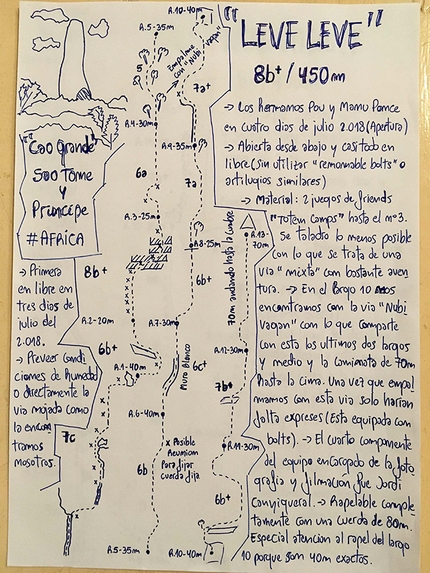 "LEVE LEVE"
8b+/450m
"Cao grande"
Sao Tome
y
Principe
#AFRICA
→ Primera
en libre en
tres dias de
julio del
2.018.
→ Preveer condi
ciones de humedad
o directamente la
via mojada como
la encon
tramos
nosotros.
→ Los hermanos Pou y Manu Ponce
en cuatro dias de julio 2.018 (Apertura)
→ Abierta desde abajo y casi todo en
libre (sin utilizar "removable bolts" o
artilugios similares)
→ Material: 2 juegos de friends
"Totem camps" hasta el nº3.
Se taladro lo menos posible
con lo que se trata de una
via "mixta" con bastante aven
tura. → En el largo 10 nos
encontramos con la via "Nubi
vagan" con lo que comparte
con esta los ultimos dos largos
y medio y la caminata de 70m
hasta la cima. Una vez que empal
mamos con esta via solo harian
falta expreses (Esta equipada con
bolts). → El cuarto componente
del equipo encargado de la foto
grafia y filmacion fue Jordi
Canyigueral. → Rapelable comple
tamente con una cuerda de 80m.
Especial atencion al rapel del largo
10 porque son 40m exactos.
7c
R.1-40m
6b+
R.2-20m
8b+
R.3-25m
6a
R.4-30m
5
R.5-35m
R.5-35m
6b
Posible
Reunion
Para fijar
cuerda fija
R.6-40m
6c+
Muro Blanco
R.7-30m
6b+
R.8-25m
7a
R.9-35m
7a+
Empalme
con "Nubi
vagan"
R.10-40m
R.10-40m
6b+
R.11-30m
7b+
R.12-30m
70m andando hasta la cumbre
R.13-
70m